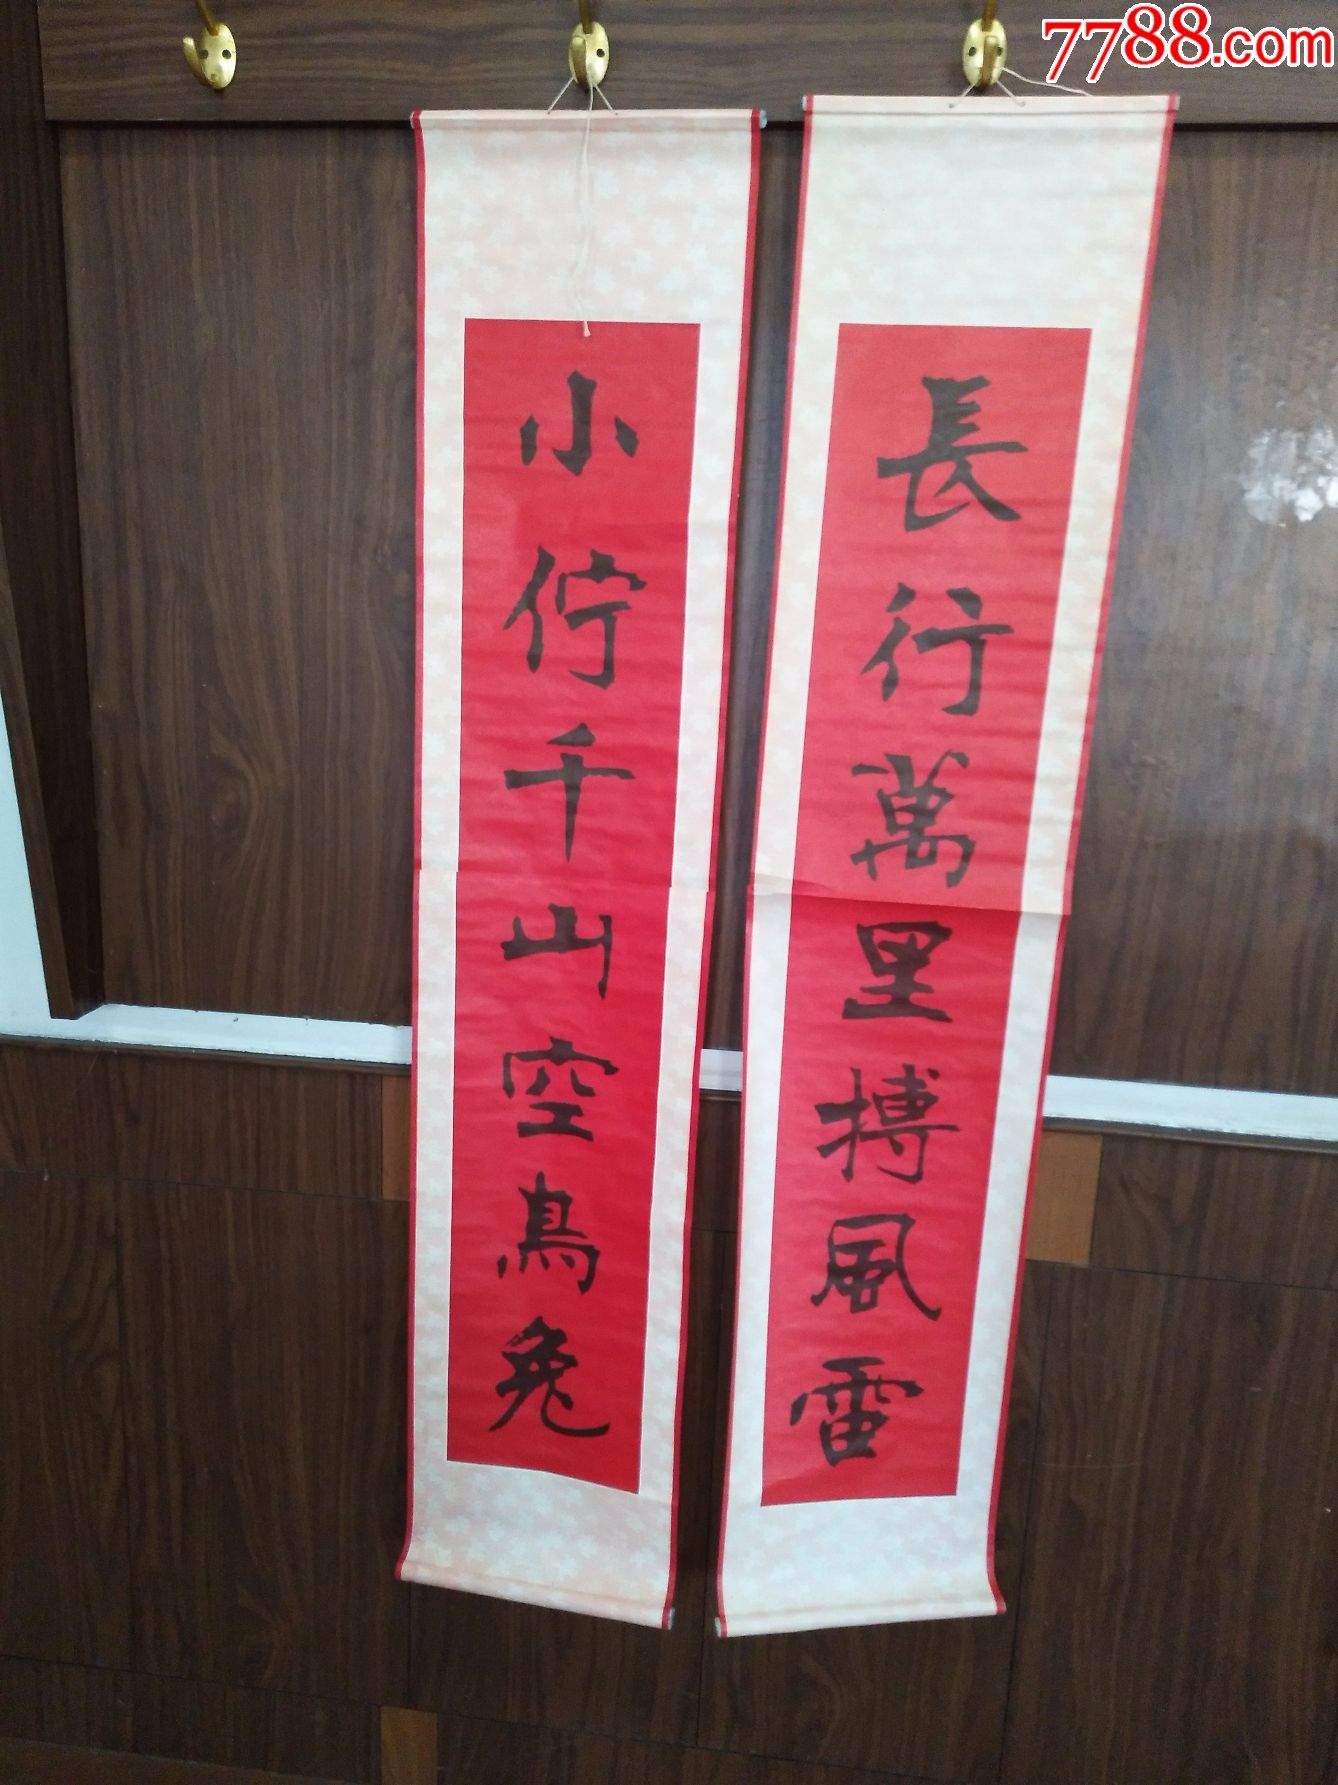 長行萬里搏風雷
小佇千山空鳥兔
7788.com